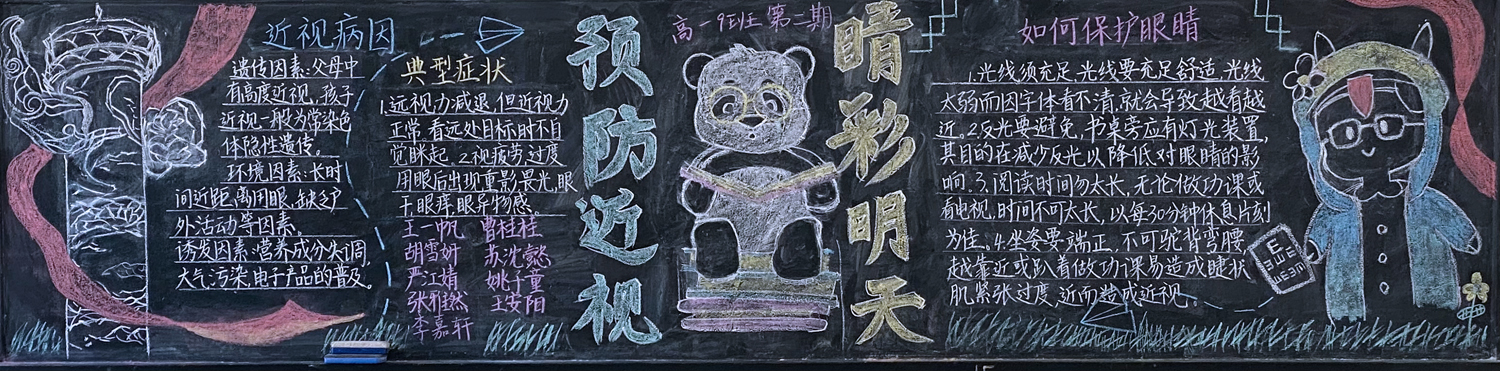 近视病因
遗传因素:父母中
有高度近视,孩子
近视一般为常染色
体隐性遗传。
环境因素:长时
间近距离用眼,缺乏户
外活动等因素。
诱发因素:营养成分失调,
大气污染,电子产品的普及。
典型症状
1.远视力减退,但近视力
正常,看远处目标时不自
觉眯起 2.视疲劳,过度
用眼后出现重影畏光,眼
干眼痒,眼异物感
王一帆 曹桂桂
胡雪妍 苏沈懿
严江婧 姚千童
张雅燃 王安阳
李嘉轩
预防近视
高一9班 第二期
睛彩明天
如何保护眼睛
1.光线须充足,光线要充足舒适,光线
太弱而因字体看不清,就会导致越看越
近。2.反光要避免,书桌旁应有灯光装置,
其目的在减少反光以降低对眼睛的影
响.3.阅读时间勿太长,无论做功课或
看电视,时间不可太长,以每30分钟休息片刻
为佳。4.坐姿要端正,不可驼背弯腰,
越靠近或趴着做功课易造成睫状
肌紧张过度,近而造成近视。